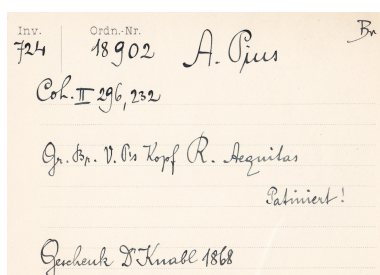 Inv. Ordn.-Nr. Br
724 18902 A. Pius
Coh. II 296, 232
Gr. Br. V. Ps Kopf R. Aequitas
Patiniert!
Geschenk Dr Knabl 1868